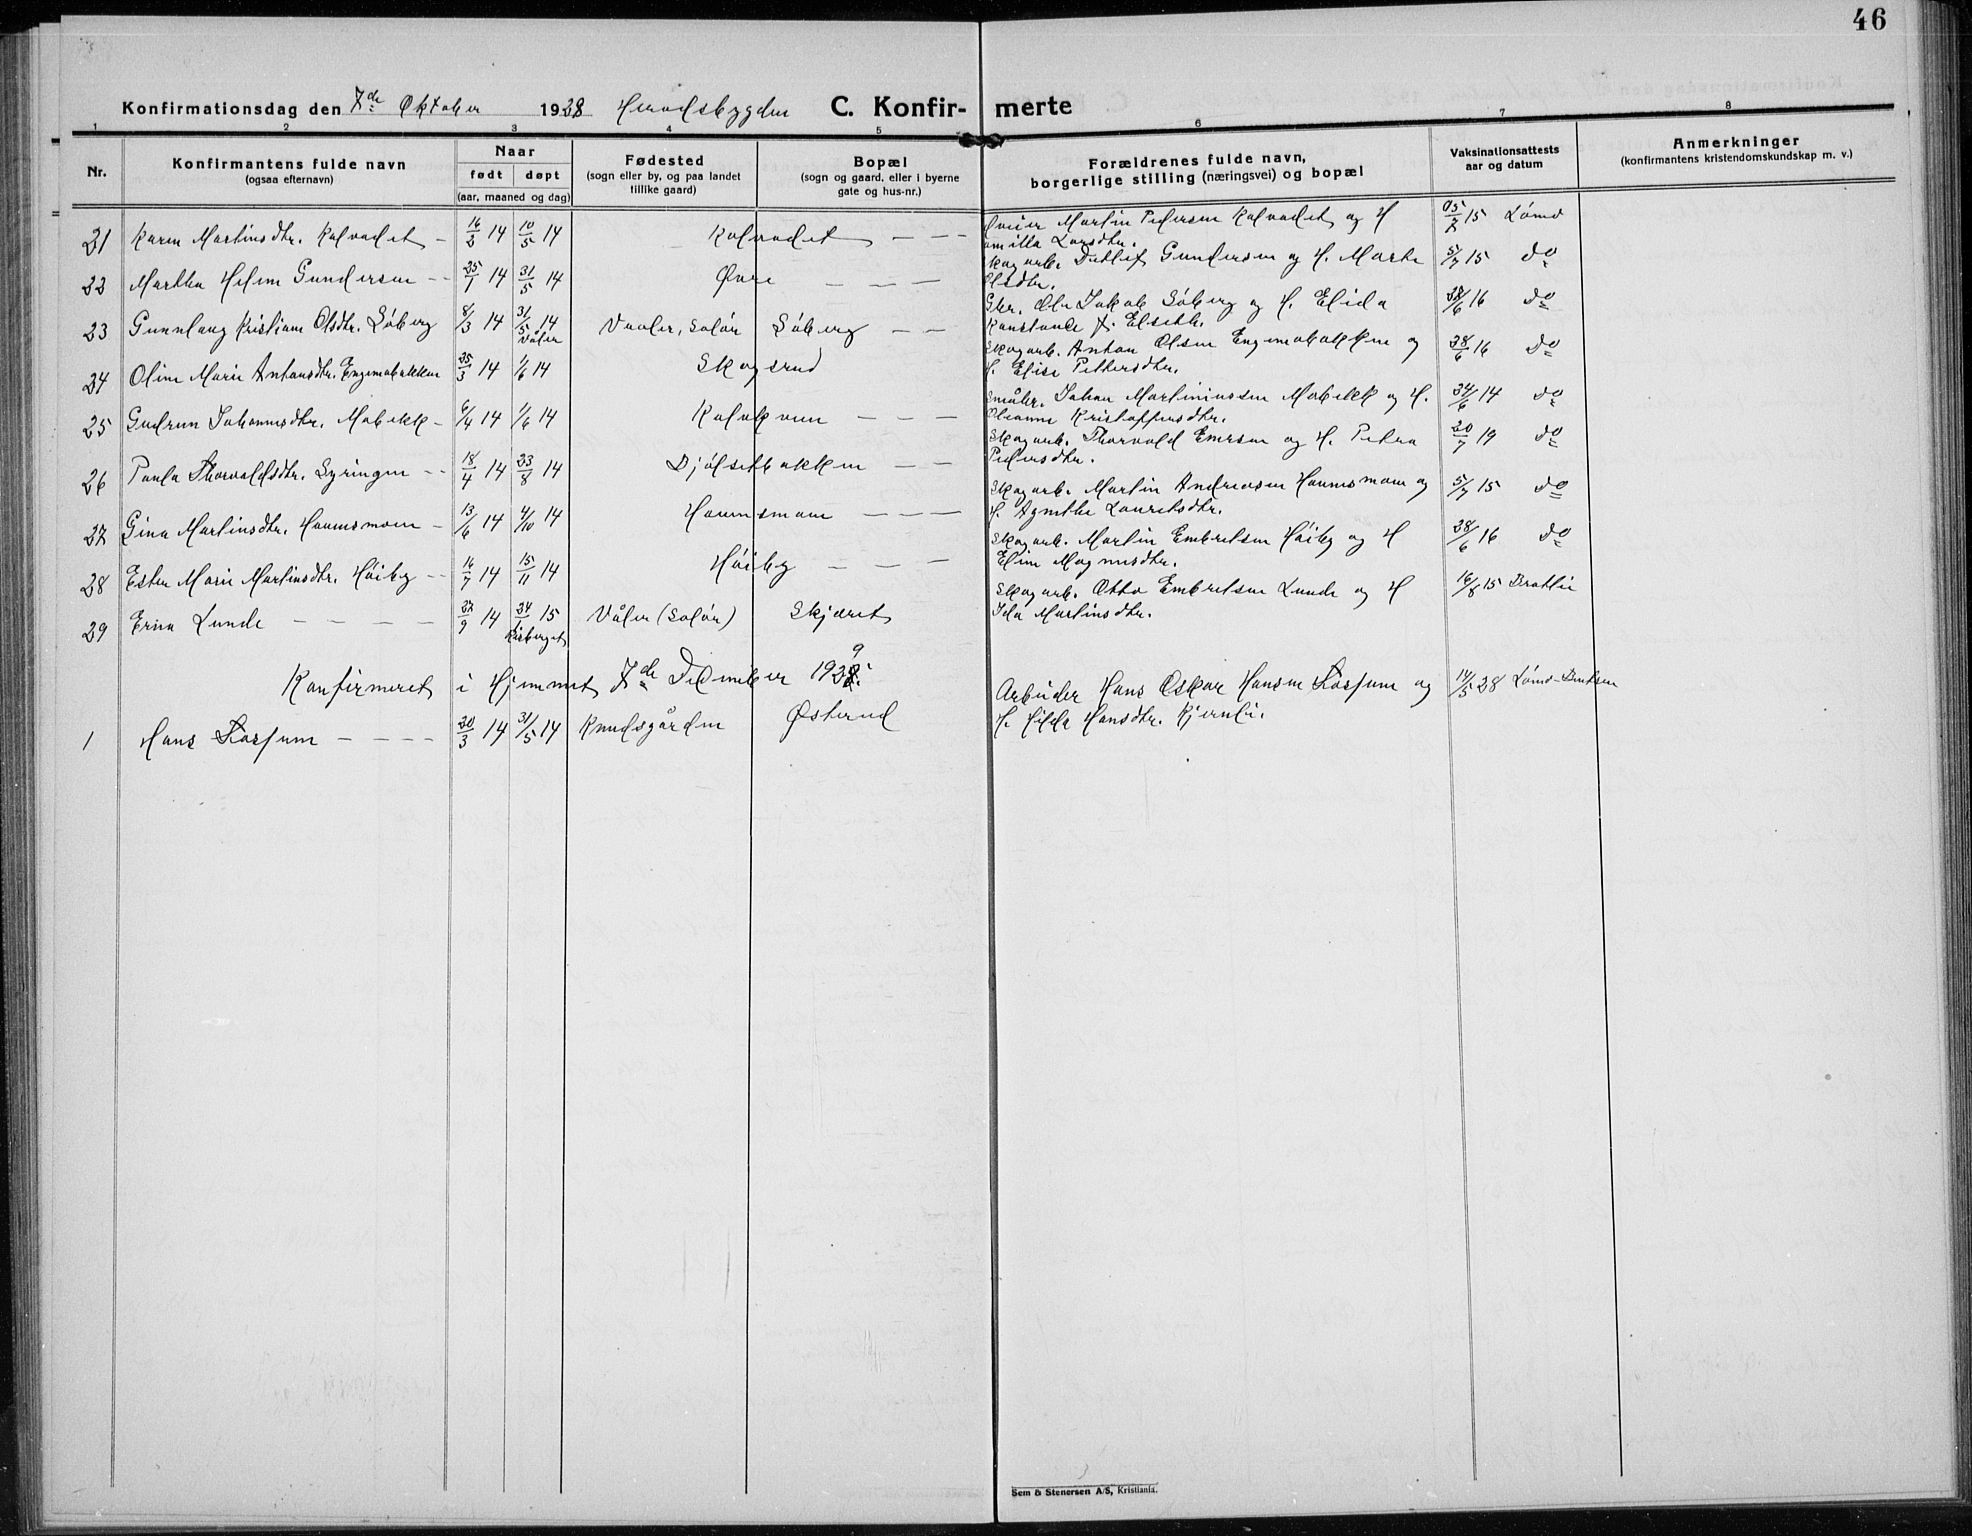 46
Konfirmationsdag den 7de Oktober 1928 Herodsbygden C. Konfir- merte
1 2 3 4 5 6 7 8
Nr. Konfirmantens fulde navn (ogsaa efternavn) Naar født døpt (aar, maaned og dag) Fødested (sogn eller by, og paa landet tillike gaard) Bopæl (sogn og gaard, eller i byerne gate og hus-nr.) Forældrenes fulde navn, borgerlige stilling (næringsvei) og bopæl Vaksinationsattests aar og datum Anmerkninger (konfirmantens kristendomskundskap m. v.)
21 Karen Martinsdtr. Kalvadet - 16/2 14 10/5 14 Kalvadet - - - Martin Pedersen Kalvadet og H
Larsdtr. 15 Lømo
22 Martha Helene Gundersen - - 25/1 14 31/5 14 Øvre - - - Skogarb. Detlef Gundersen og H. Marte
Olsdtr. 5/7 15 do
23 Gunnlaug Kristiane Olsdtr. Søberg 8/3 14 31/5 14 Våler Vaaler, Solør Søberg - - Gbr. Ole Jakob Søberg og H. Elida
Konstanse f. Elseth. 28/6 16 do
24 Oline Marie Antonsdtr. Engenebakken 25/3 14 1/6 14 Skogsrud Skogarb. Anton Olsen Engenebakken og
H. Elise Pettersdtr. 28/6 16 do
25 Gudrun Johannesdtr. Mobekk - 6/4 14 1/6 14 Kalvkven - - - Småbr. Johan Martiniussen Mobekk og H.
Oleanne Kristoffersdtr. 24/6 14 do
26 Paula Thorvaldsdtr. Syringen - - 18/4 14 23/8 14 Djølsetbakken - - Skogarb. Thorvald Emersen og H. Petra
Pedersdtr. 20/7 19 do
27 Gina Martinsdtr. Havnsmoen - 13/6 14 4/10 14 Havnsmoen - - - Skogarb. Martin Andreasen Havnsmoen og
H. Agnethe Lauritsdtr. 5/7 15 do
28 Ester Marie Martinsdtr. Høiby - - 16/7 14 15/11 14 Høiby - - - Skogarb. Martin Embretsen Høiby og H
Eline Magnusdtr. 28/6 16 do
29 Erna Lunde - - - - 22/9 14 24/1 15 Kisberget Våler (Solør) Skjæret Skogarb. Otto Embretsen Lunde og H
Ida Martinsdtr. 16/8 15 Brattlie
Konfirmeret i Hjemmet 7de December 1929.
1 Hans Storsum - - - - 20/3 14 31/5 14 Knudsgården Østerud Arbeider Hans Oskar Hansen Storsum og
H. Hilda Hansdtr. Kjernli. 14/5 28 Lømo-Bentsen
Sem & Stenersen A/S, Kristiania.